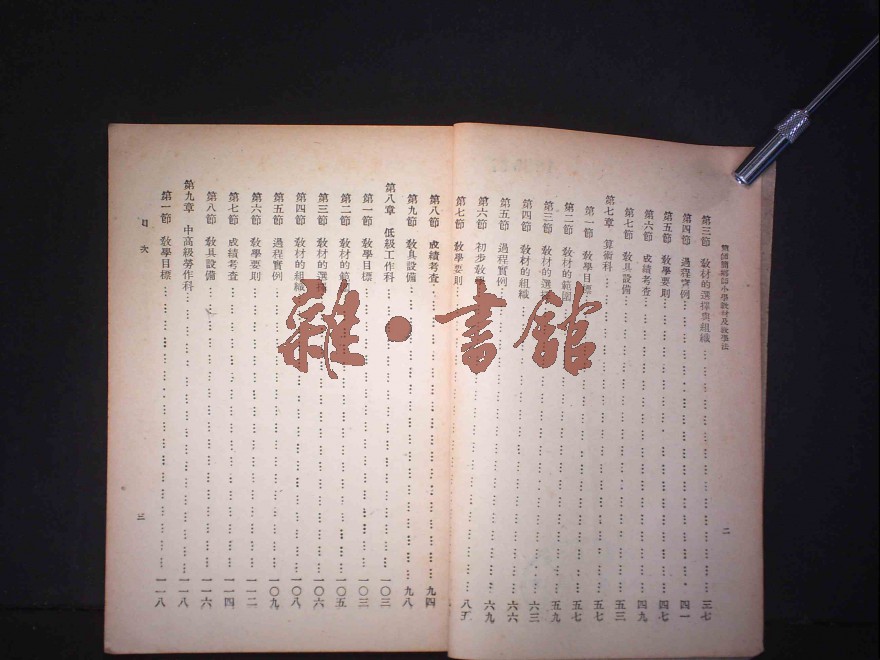 小學教材及教學法
二
第三節　教材的選擇與組織……三七
第四節　過程實例……四一
第五節　教學要則……四七
第六節　成績考查……四九
第七節　教具設備……五三
第七章　算術科……五七
第一節　教學目標……五七
第二節　教材的範圍……五九
第三節　教材的選擇……
第四節　教材的組織……六三
第五節　過程實例……六六
第六節　初步教學……六九
第七節　教學要則……八
第八節　成績考查……九四
第九節　教具設備……九八
第八章　低級工作科……一〇三
第一節　教學目標……一〇三
第二節　教材的範圍……一〇五
第三節　教材的選擇……一〇六
第四節　教材的組織……一〇八
第五節　過程實例……一〇九
第六節　教學要則……一一二
第七節　成績考查……一一四
第八節　教具設備……一一六
第九章　中高級勞作科……一一八
第一節　教學目標……一一八
目次
三
雜·書館